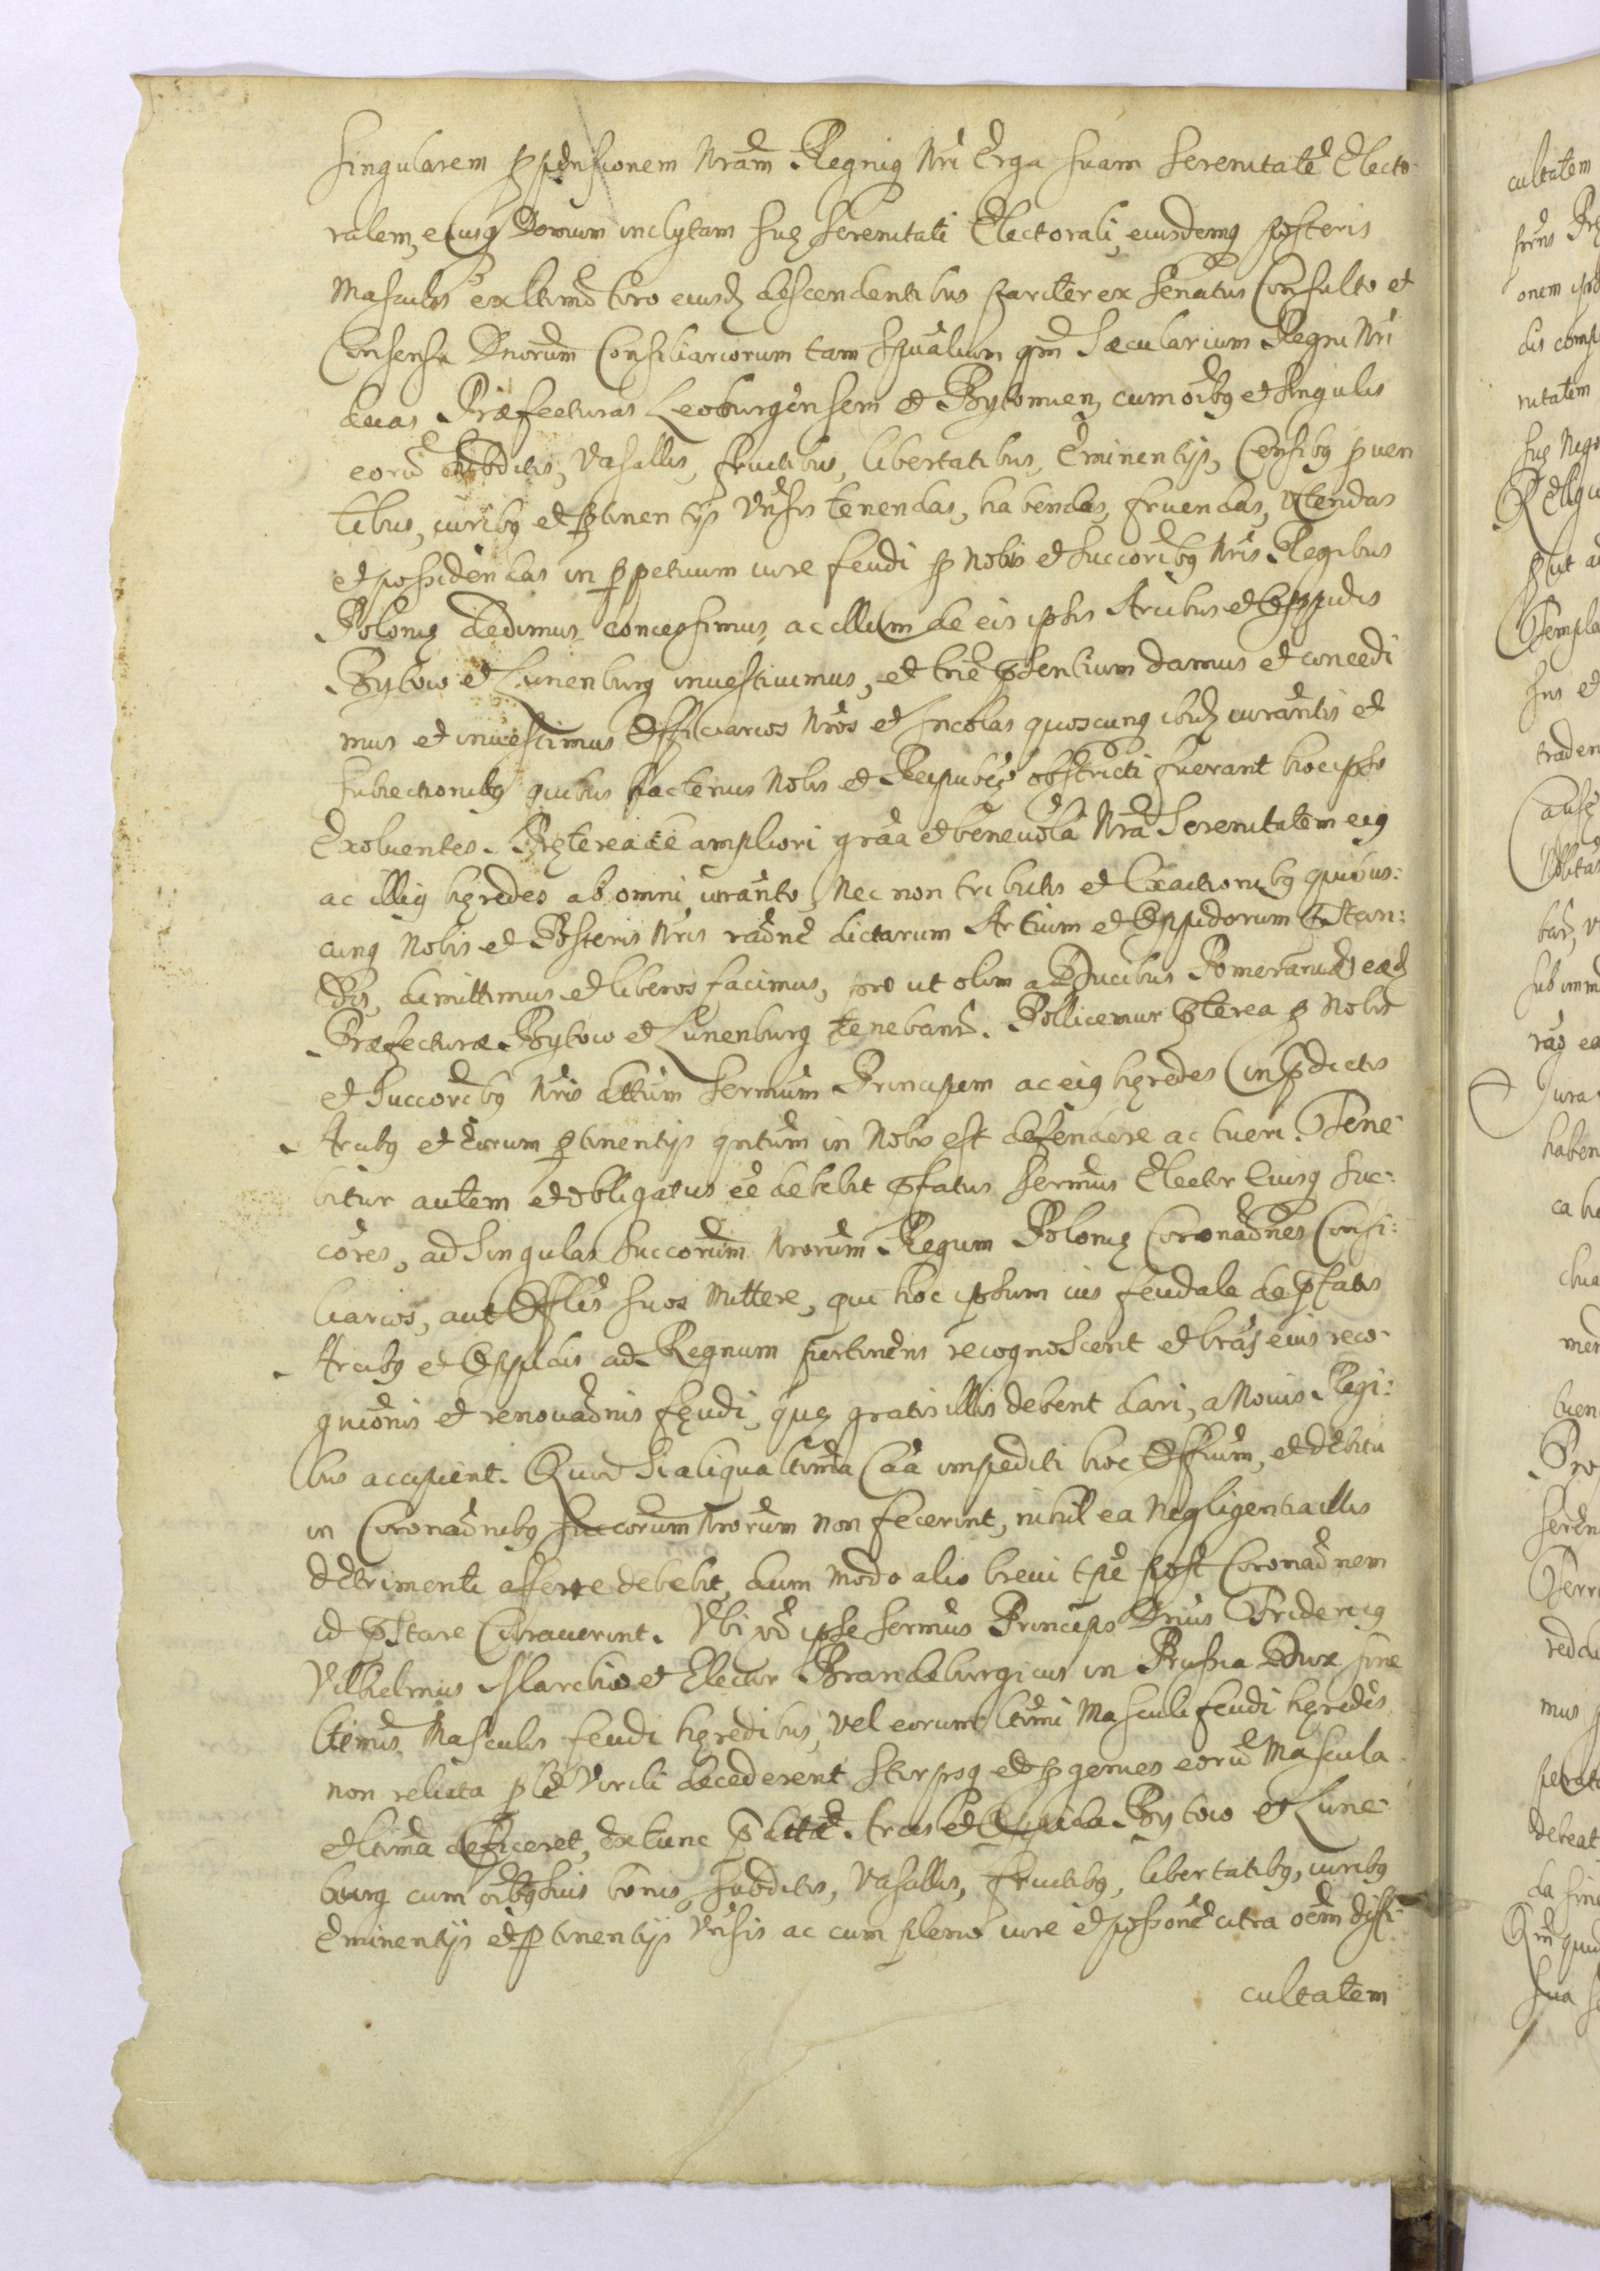 singularem ppensionem Nram Regniq Nri Erga suam Serenitatē Electo-
ralem, eiusq Domum inclytam suę Serenitati Electorali, eiusdemq posteris
Masculis ex ltimo toro eiusd descendentibus pariter ex Senatus Consulto et
Consensu Dnorum Consiliariorum tam Spualium qm Sæcularium Regni Nri
duas Præfecturas Leoburgensem et Bytomien, cum oibq et singulis
eorū subditis, Vasallis, fructibus, libertatibus, Eminentijs, Censibq pven
tibus, iuribq et ptinentijs Vnsis tenendas, habendas, fruendas, Vtendas
et possidendas in ppetuum iure feudi p Nobis et Succoribq Nris Regibus
Polonię dedimus concessimus, ac illum de eis ipsis Arcibus et Oppidis
Bytow et Lunenburg investivimus, et tnē pntium damus et concedi
mus et investimus Officiarios Nros et Incolas quoscunq ibid iurantis et
Subiectionibq quibus hactenus Nobis et Reipubcę obstricti fuerant hoc ipso
Exolventes. Pręterea dē ampliori graa et benevola Nra Serenitatem eiq
ac illiq hęredes ab omni iuranto, Nec non tributis et Exactionibq quibus:
cunq Nobis et Posteris Nris radne dictarum Artium et Oppidorum pstan:
dis, dimittimus et liberos facimus, pro ut olim a Ducibus Pomeraniæ eæd
Præfecturæ Bytow et Lunenburg tenebantr. Pollicemur pterea p Nobis
et Succoribq Nris dttum Sermum Principem ac eiq hęredes in pdictis
Arcibq et Eorum ptinentijs qntum in Nobis est defendere ac tueri. Tene-
bitur autem et obligatus eē debebit pfatus Sermus Elector Eiusq Suc:
cores, ad Singulas Succorum Nrorum Regum Polonię Coronadnes Consi:
liarios, aut Offles suos Mittere, qui hoc ipsum ius feudale de pfatis
Arcibq et Oppidis ad Regnum pertinens recognoscent et lras eius reco-
gnionis et renovadnis feudi, quę gratis illis debent dari, a Novis Regi:
bus accipient. Quod Si aliqua ltima Caā impediti hoc Offium, et debitū
in Coronadnibq Succorum Nrorum Non fecerint, nihil ea Negligentia illis
detrimenti afferre debebit, dum modo alio brevi tpe post Coronadnem
id pstare Curaverint. Vbi vo ipse Sermus Princeps Dnus Fridericq
Vilhelmus Marchio et Elector Brandeburgicus in Prussia Dux sine
ltimis Masculis feudi hęredibus, vel eorum ltimi Masculi feudi hęredes
non relicta ple Virili decederent Stirpsq et pgenies eorū Mascula
et ltima deficeret, extunc pdttæ Arces et Oppida Bytow et Lune-
burg cum oibq suis bonis, Subditis, Vasallis, fructibq, libertatibq, iuribq
Eminentijs et ptinentijs Vnsis ac cum pleno iure et possone citra oem diffi-
cultatem